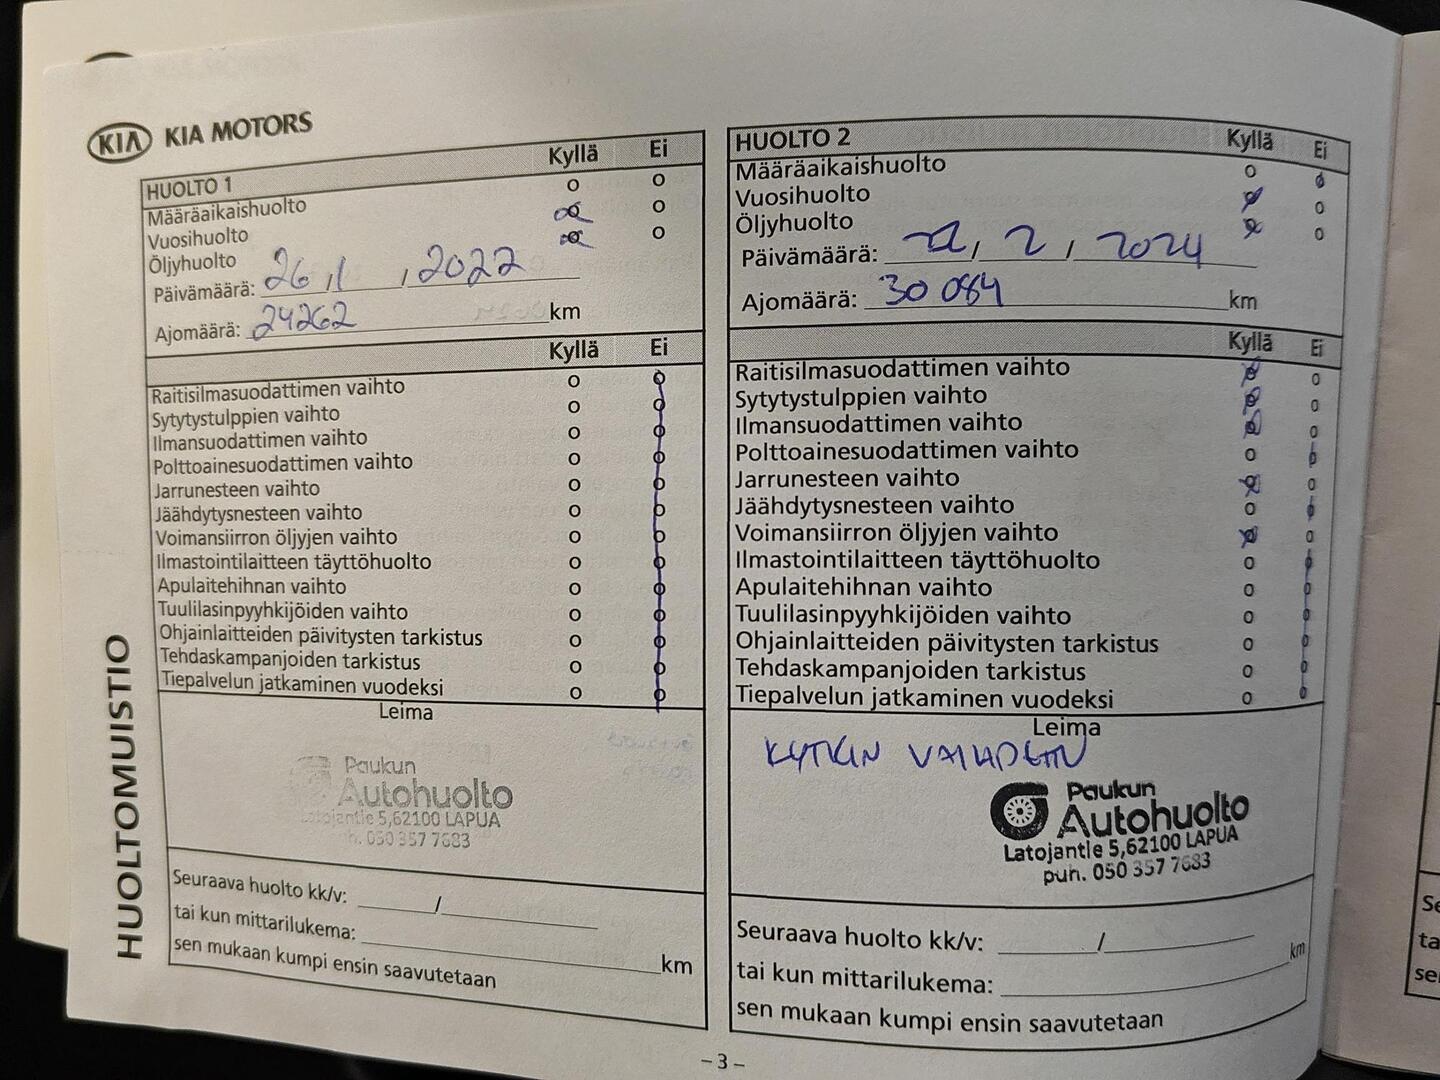 KIA KIA MOTORS
HUOLTOMUISTIO
HUOLTO 1 Kyllä Ei
Määräaikaishuolto o o
Vuosihuolto o o
Öljyhuolto o o
Päivämäärä: 26, 1, 2022
Ajomäärä: 24262 km
Kyllä Ei
Raitisilmasuodattimen vaihto o o
Sytytystulppien vaihto o o
Ilmansuodattimen vaihto o o
Polttoainesuodattimen vaihto o o
Jarrunesteen vaihto o o
Jäähdytysnesteen vaihto o o
Voimansiirron öljyjen vaihto o o
Ilmastointilaitteen täyttöhuolto o o
Apulaitehihnan vaihto o o
Tuulilasinpyyhkijöiden vaihto o o
Ohjainlaitteiden päivitysten tarkistus o o
Tehdaskampanjoiden tarkistus o o
Tiepalvelun jatkaminen vuodeksi o o
Leima
Paukun
Autohuolto
Latojantie 5, 62100 LAPUA
h. 050 357 7683
Seuraava huolto kk/v: /
tai kun mittarilukema: km
sen mukaan kumpi ensin saavutetaan
HUOLTO 2 Kyllä Ei
Määräaikaishuolto o o
Vuosihuolto o o
Öljyhuolto o o
Päivämäärä: 22, 2, 2024
Ajomäärä: 30 084 km
Kyllä Ei
Raitisilmasuodattimen vaihto o o
Sytytystulppien vaihto o o
Ilmansuodattimen vaihto o o
Polttoainesuodattimen vaihto o o
Jarrunesteen vaihto o o
Jäähdytysnesteen vaihto o o
Voimansiirron öljyjen vaihto o o
Ilmastointilaitteen täyttöhuolto o o
Apulaitehihnan vaihto o o
Tuulilasinpyyhkijöiden vaihto o o
Ohjainlaitteiden päivitysten tarkistus o o
Tehdaskampanjoiden tarkistus o o
Tiepalvelun jatkaminen vuodeksi o o
Leima
KYTKIN VAIHDETTU
Paukun
Autohuolto
Latojantie 5, 62100 LAPUA
puh. 050 357 7683
Seuraava huolto kk/v: /
tai kun mittarilukema: km
sen mukaan kumpi ensin saavutetaan
– 3 –